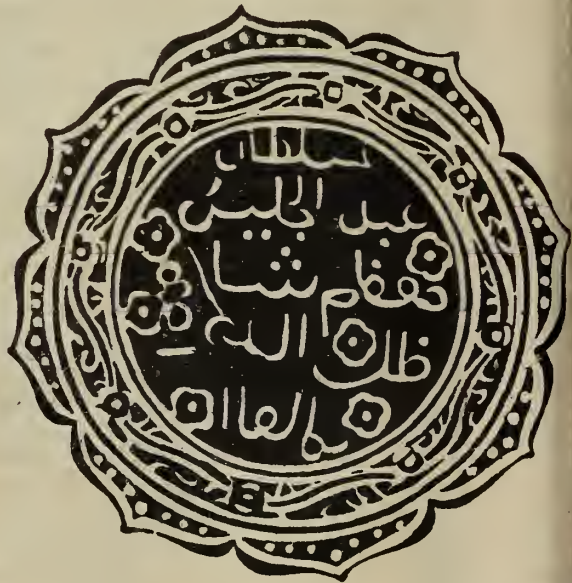 سلطان
عبد الجليل
معظم شاه
ظل الله في
العالم